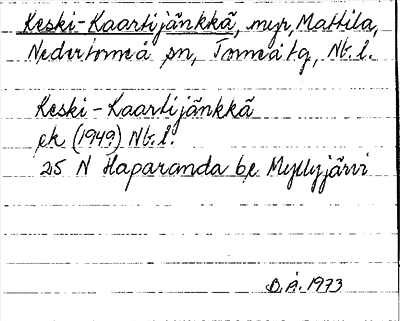 Keski-Kaartijänkkä, myr, Mattila,
Nedertorneå sn, Torneå tg, Nb. l.
Keski-Kaartijänkkä
ek (1949) Nb. l.
25 N Haparanda be Myllyjärvi
B.Å. 1973